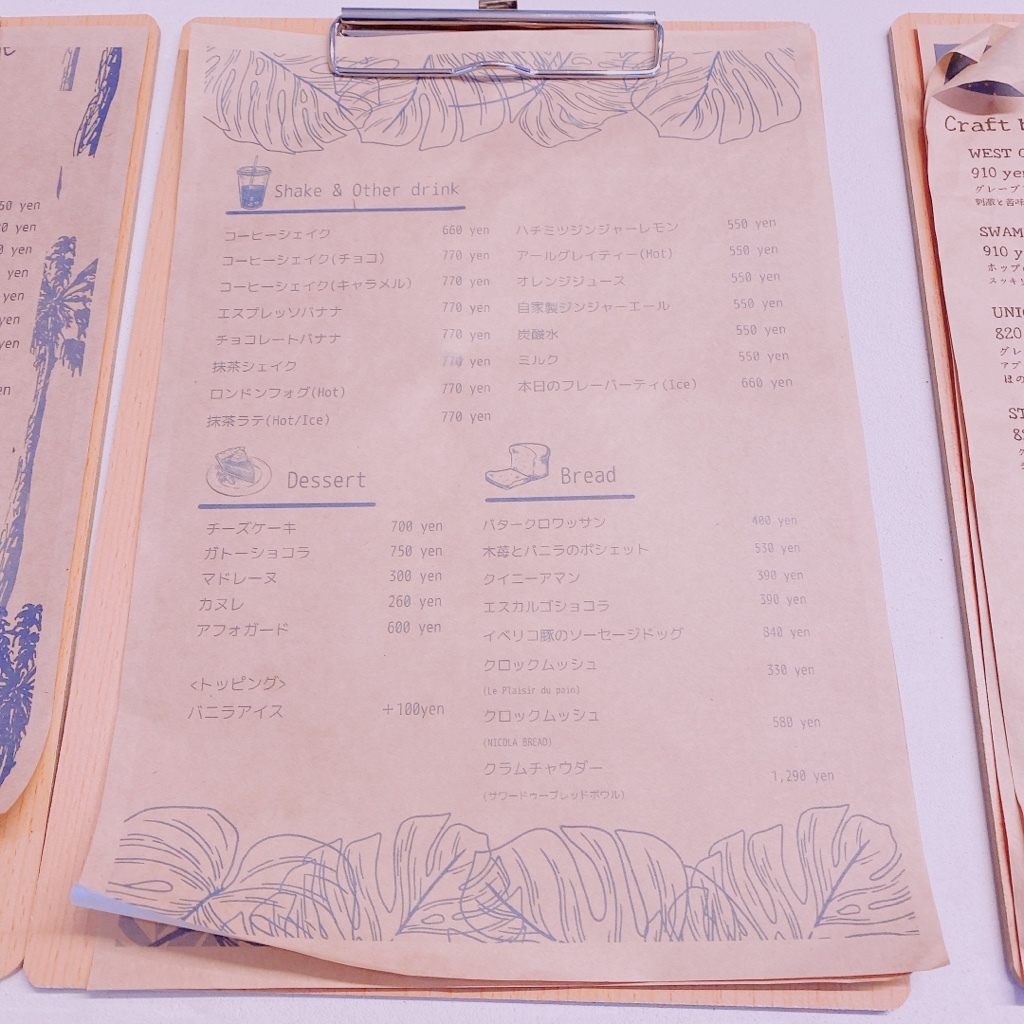 Shake & Other drink
コーヒーシェイク 660 yen
コーヒーシェイク(チョコ) 770 yen
コーヒーシェイク(キャラメル) 770 yen
エスプレッソバナナ 770 yen
チョコレートバナナ 770 yen
抹茶シェイク 770 yen
ロンドンフォグ(Hot) 770 yen
抹茶ラテ(Hot/Ice) 770 yen
ハチミツジンジャーレモン 550 yen
アールグレイティー(Hot) 550 yen
オレンジジュース 550 yen
自家製ジンジャーエール 550 yen
炭酸水 550 yen
ミルク 550 yen
本日のフレーバーティ(Ice) 660 yen
Dessert
チーズケーキ 700 yen
ガトーショコラ 750 yen
マドレーヌ 300 yen
カヌレ 260 yen
アフォガード 600 yen
<トッピング>
バニラアイス +100yen
Bread
バタークロワッサン 400 yen
木苺とバニラのポシェット 530 yen
クイニーアマン 390 yen
エスカルゴショコラ 390 yen
イベリコ豚のソーセージドッグ 840 yen
クロックムッシュ 330 yen
(Le Plaisir du pain)
クロックムッシュ 580 yen
(NICOLA BREAD)
クラムチャウダー 1,290 yen
(サワードゥーブレッドボウル)
yen
yen
yen
yen
yen
yen
Craft
WEST
910 yen
グレープ
刺激と苦味
SWAM
910 y
ホップ
スッキ
UNI
820
グレ
アプ
ほの
ST